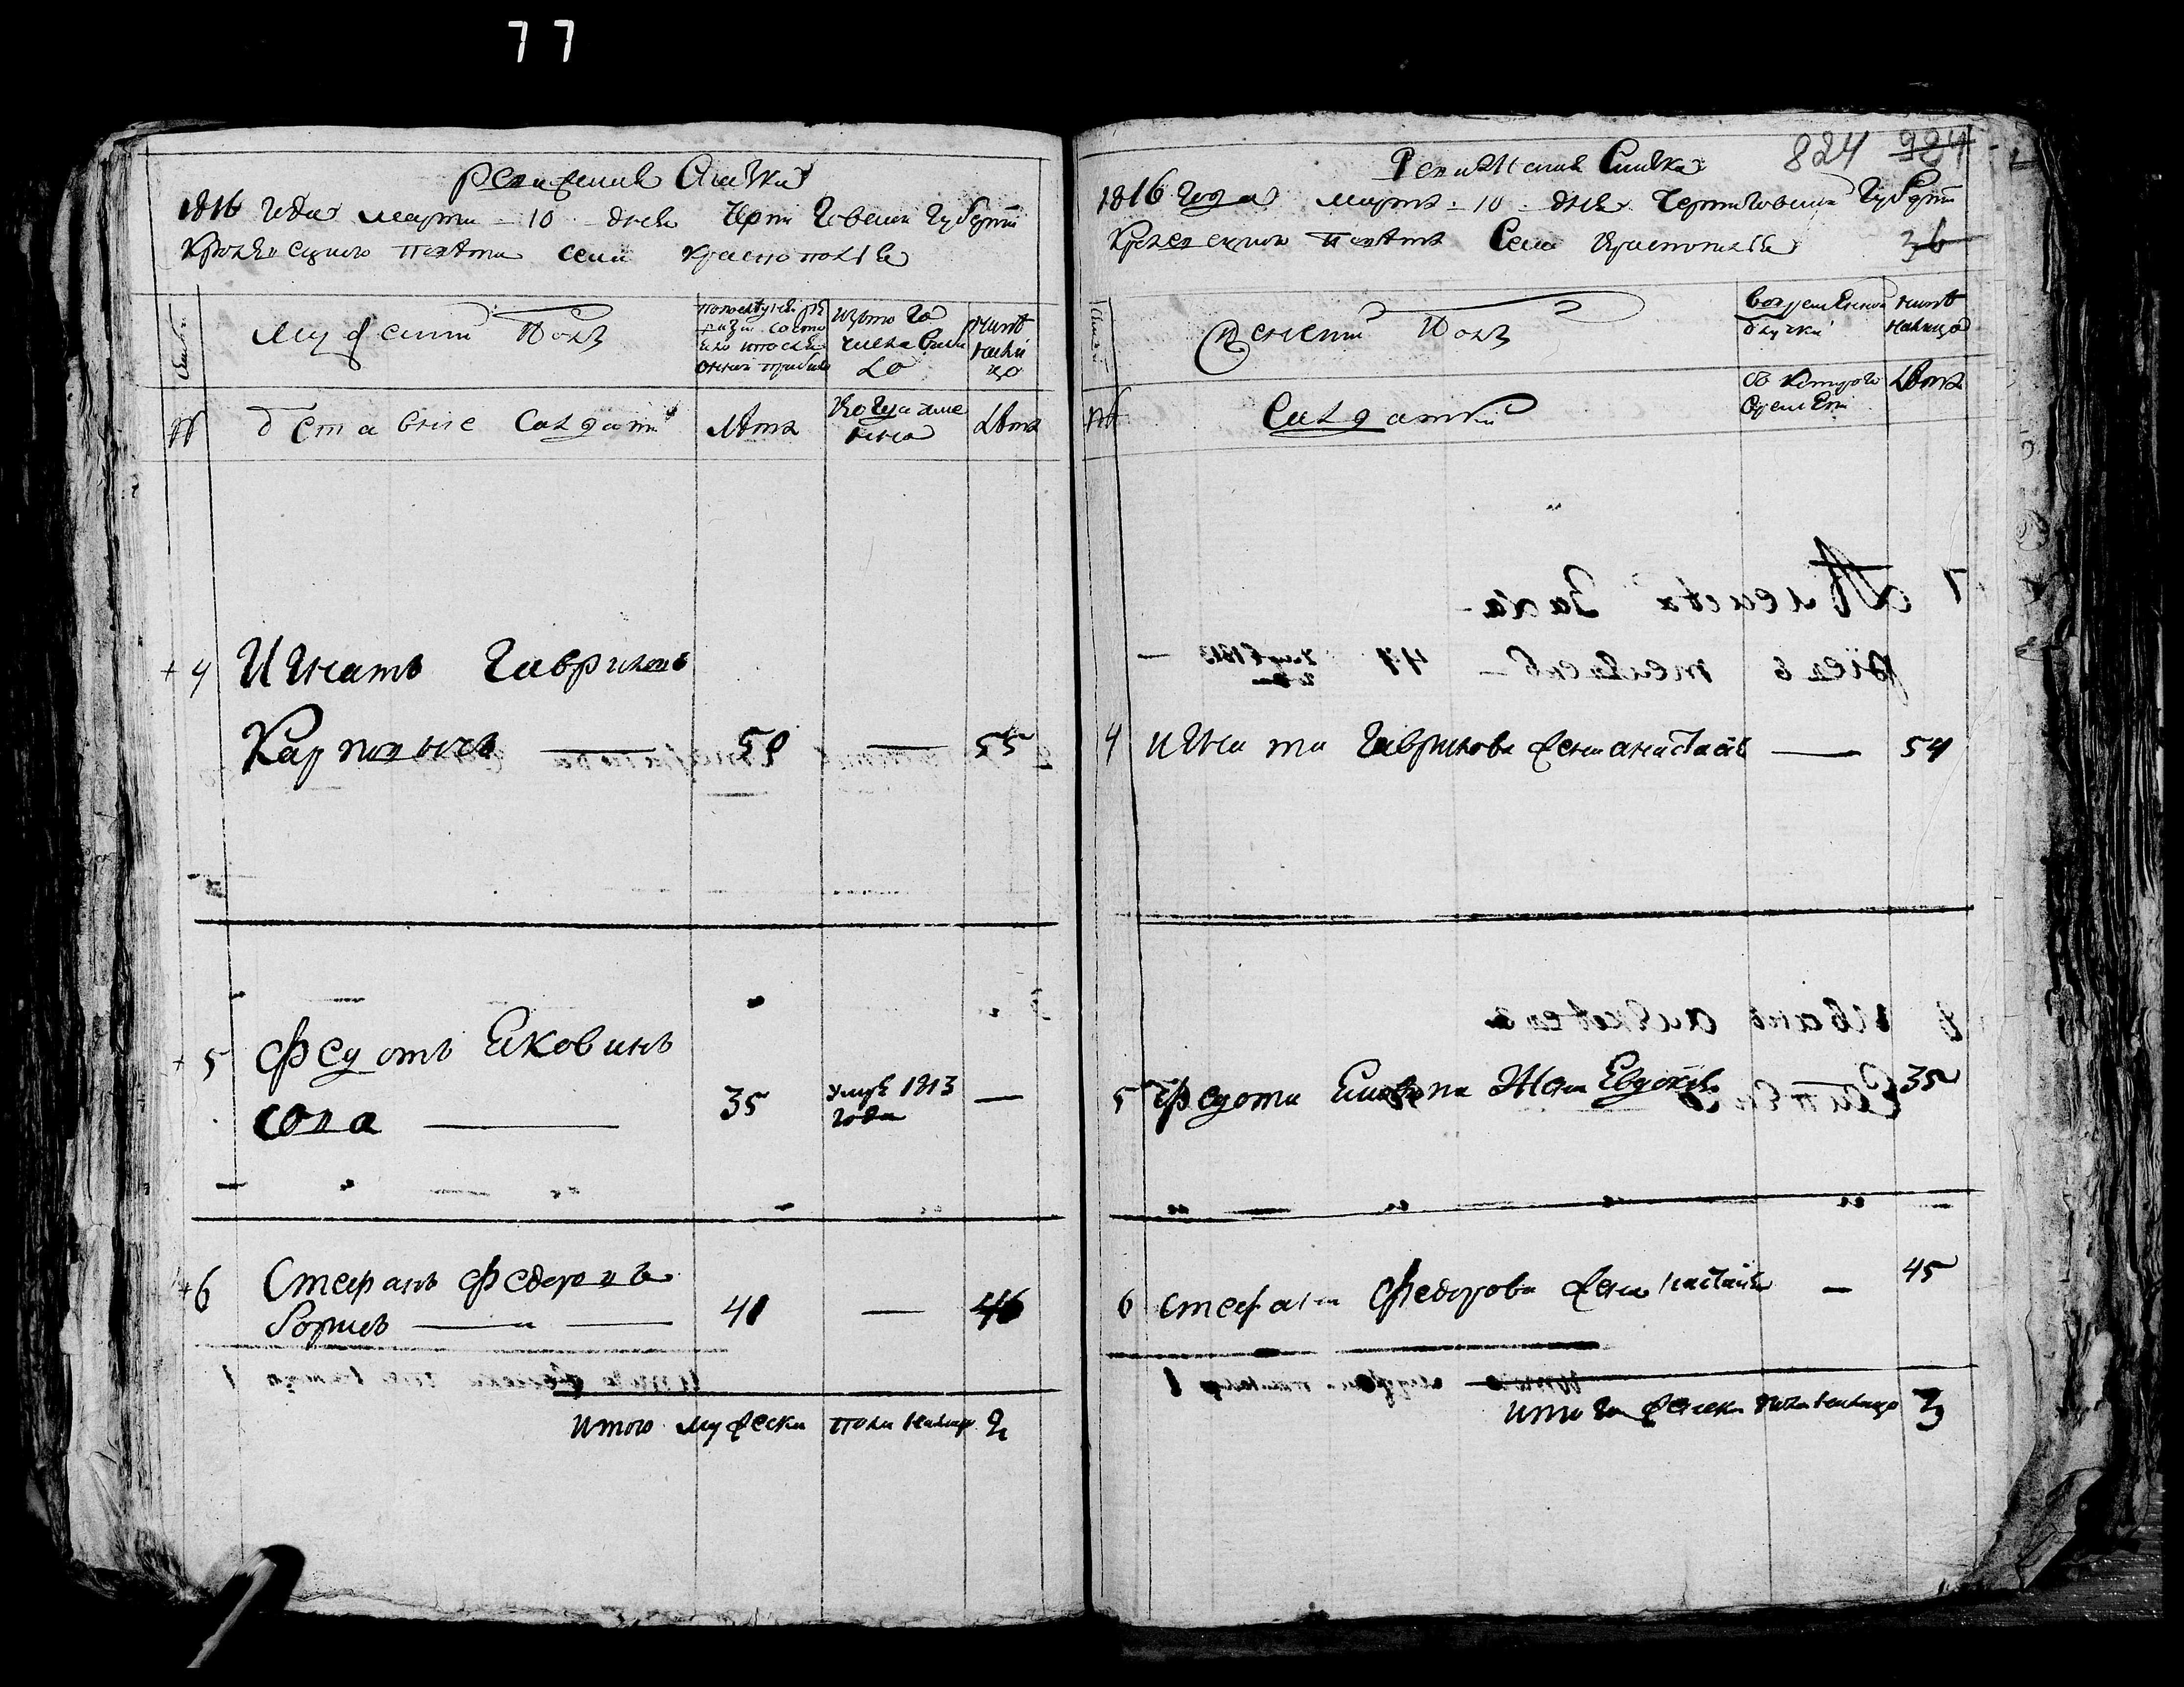 77
Ревизская Сказка
1816 года марта 10 дня Черниговской Губернии
Кролевецкого повета села Краснополья
Мужеский Полъ
по последней ревизии состояло и после оной прибыло
изъ того числа выбыло
ныне на лицо
Отставные Салдаты
Лета
Когда именно
Лета
4 Игнатъ Гавриловъ
50 — 55
5 Федотъ Яковлевъ
сопа — 35 умре 1813 года —
6 Стефанъ Федоровъ
41 — 46
Итого мужеска пола налицо 2
824 984
Ревизская Сказка
1816 года марта 10 дня Черниговской Губернии
Кролевецкого повета Села Краснополья 36
Женский Полъ
во временной отлучки
ныне налицо
Салдатки
съ которого времени
Лета
4 Игната Гаврилова жена Анастасия — 54
5 Федота Яковлева Жена Евдокия 35
6 Стефана Федорова жена Настасия — 45
Итого женска пола налицо 3